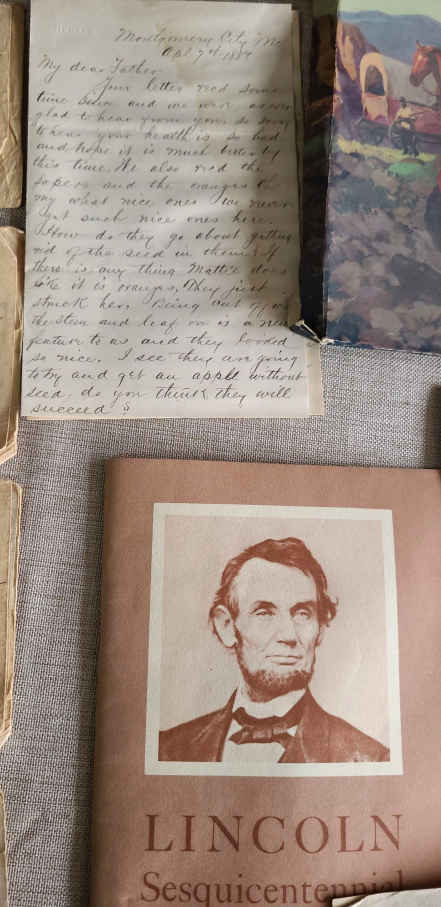 Montgomery City, Mo
Apl 7th 1889
My dear Father
Your letter recd some
time since and we were as ever
glad to hear from you. so sorry
to hear your health is so bad
and hope it is much better by
this time. We also recd the
papers and the oranges Oh
my what nice ones we never
get such nice ones here.
How do they go about getting
rid of the seed in them. If
there is any thing Mattie does
like it is oranges, They just
struck her. Being cut off with
the stem and leaf on is a new
feature to us and they looked
so nice. I see they are going
to try and get an apple without
seed, do you think they will
succeed?
LINCOLN
Sesquicentennial